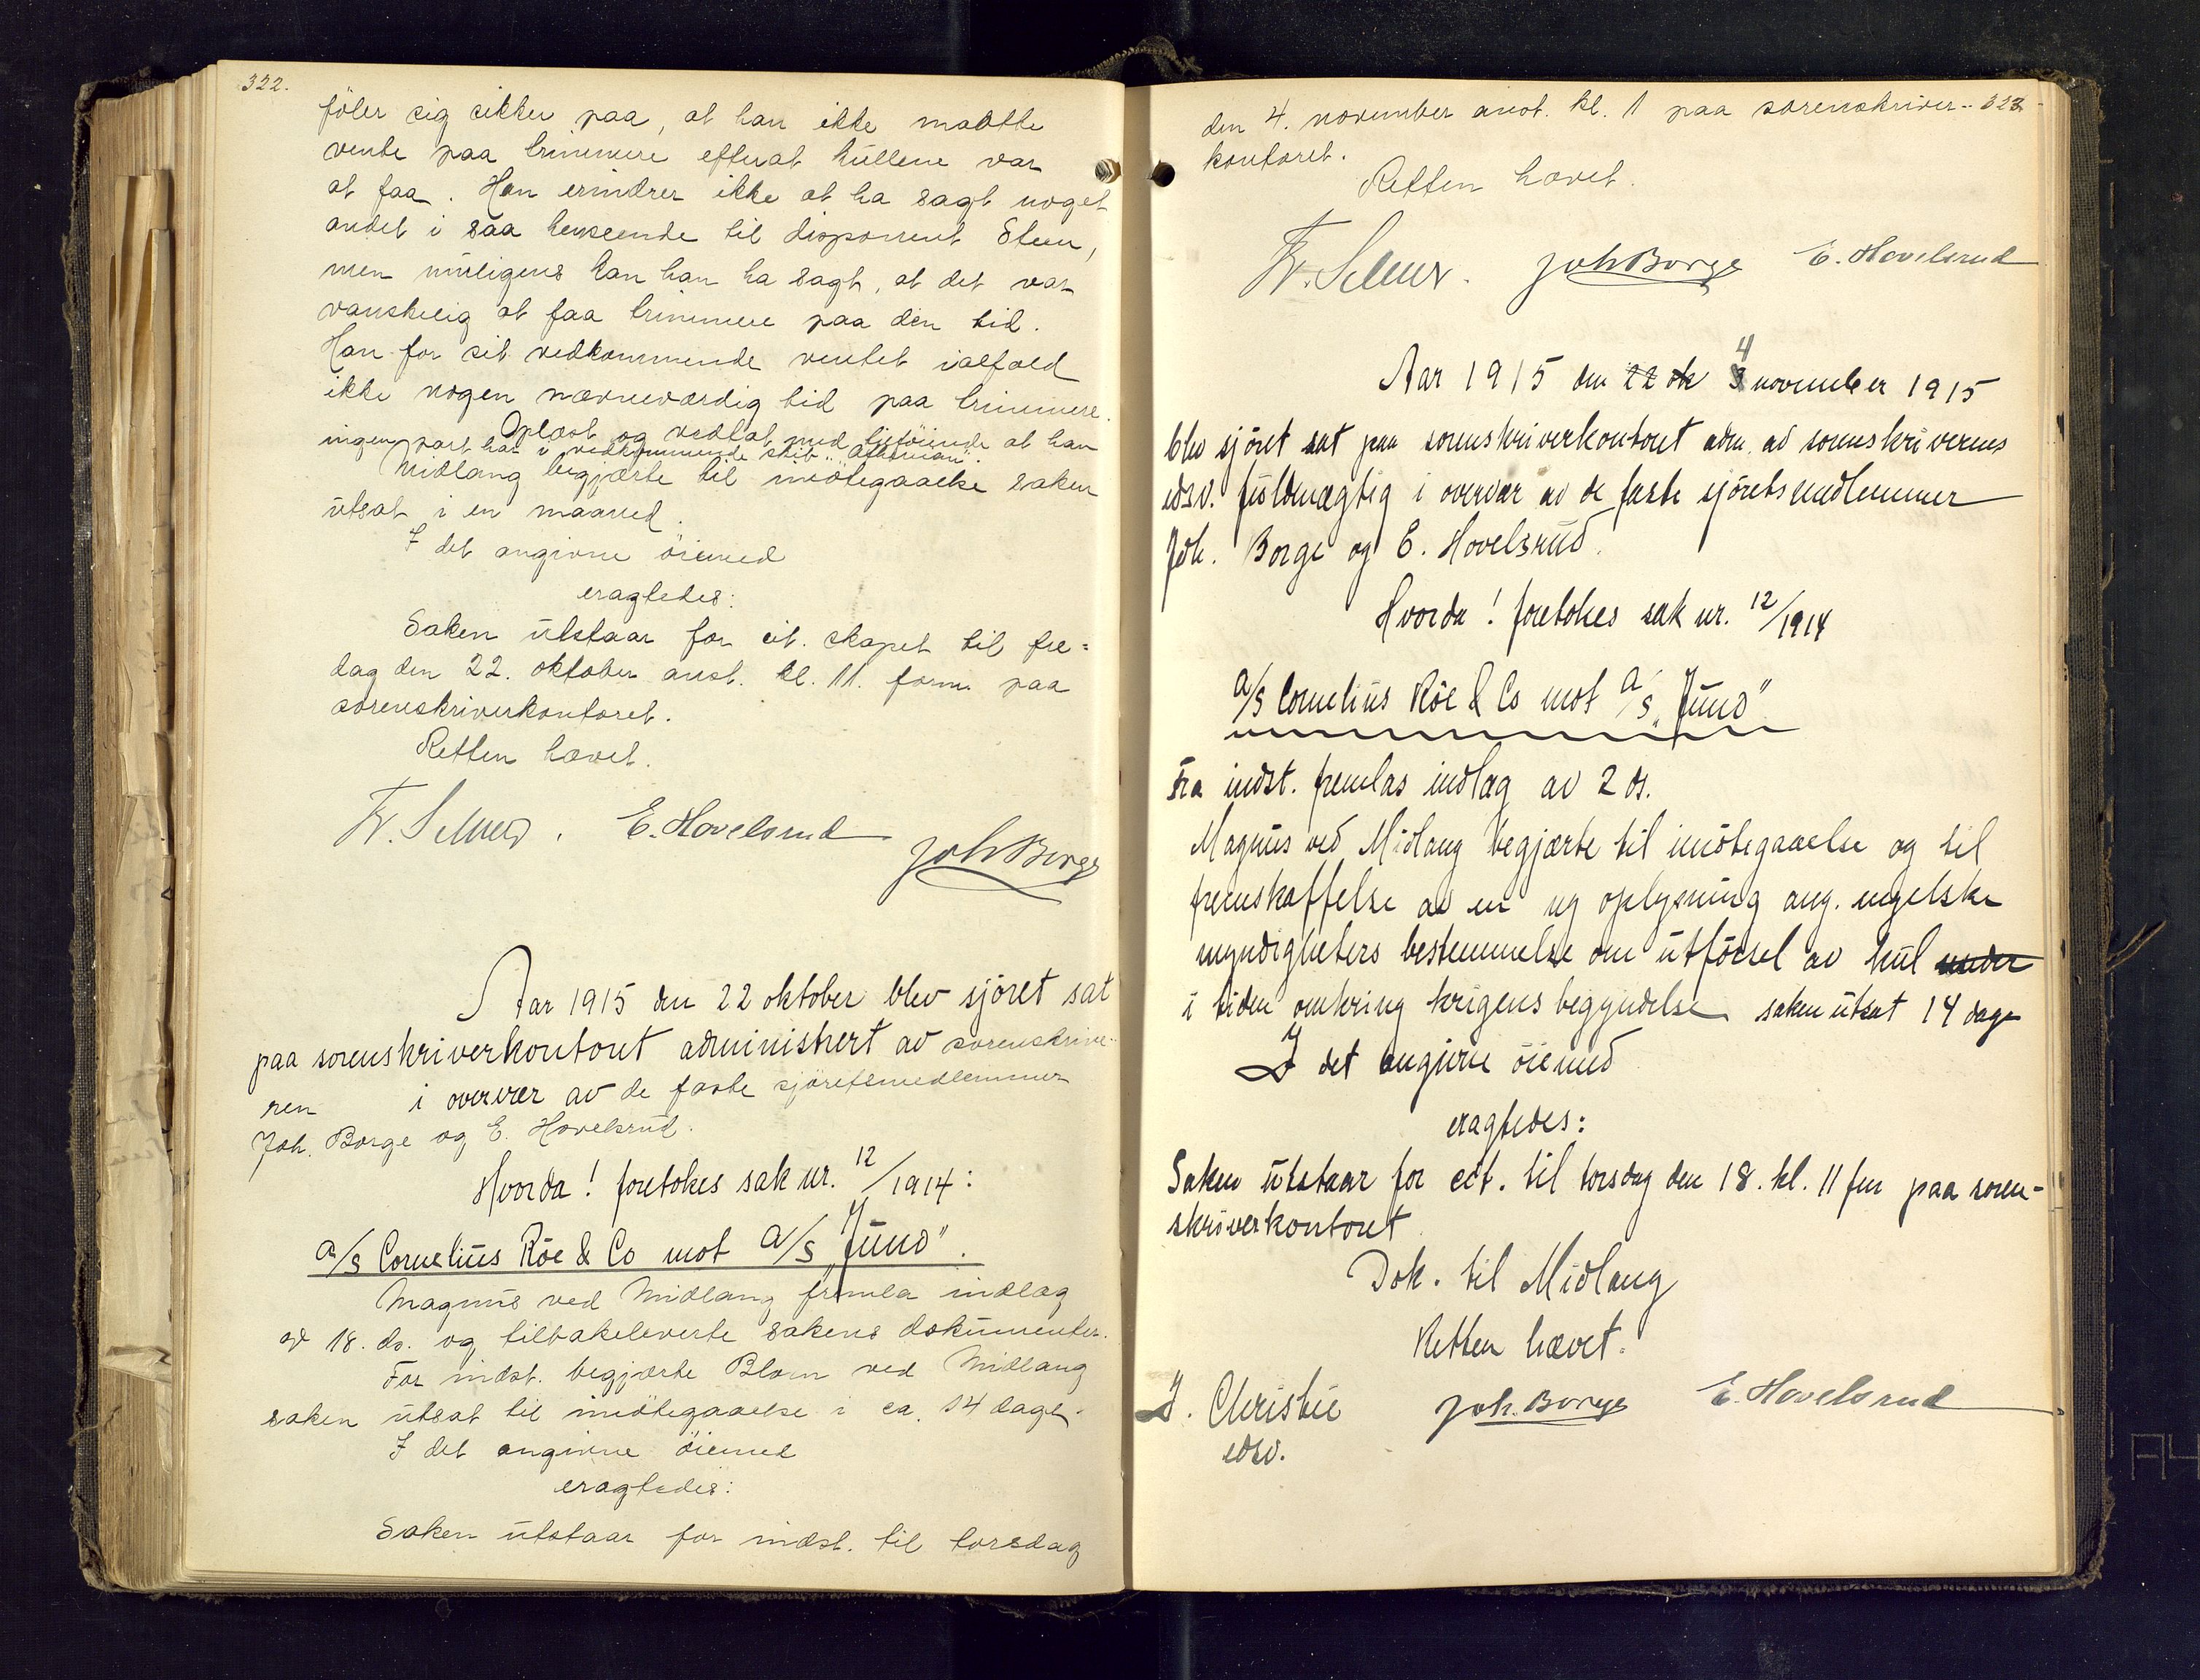 322.
föler sig sikker paa, at han ikke maatte
vente paa trimmere efterat kullene var
at faa. Han erindrer ikke at ha sagt noget
andet i saa henseende til disponent Steen,
men muligens kan han ha sagt, at det var
vanskelig at faa trimmere paa den tid.
Han for sit vedkommende ventet ialfald
ikke nogen nævneværdig tid paa trimmere.
Oplæst og vedtat med tilföiende at han
ingen part har i vedkommende skib
Midlang begjærte til imötegaaelse saken
utsat i en maaned.
I det angivne öiemed
eragtedes:
Saken utstaar for cit. skapet til fre-
dag den 22. oktober anst. kl. 11. form paa
sorenskriverkontoret.
Retten hævet.
Fr. Selmer. E. Hovelsrud Joh Borge
Aar 1915 den 22 oktober blev sjöret sat
paa sorenskriverkontoret administrert av sorenskrive-
ren i overvær av de faste sjöretsmedlemmer
Joh. Borge og E. Hovelsrud.
Hvorda! foretokes sak nr. 12/1914:
a/s Cornelius Röe & Co mot A/S „Juno".
Magnus ved Midlang fremla indlæg
av 18. ds. og tilbakeleverte sakens dokumenter.
For indst. begjærte Blom ved Midlang
saken utsat til imötegaaelse i ca. 14 dage.
I det angivne öiemed
eragtedes:
Saken utstaar for indst. til torsdag
323
den 4. november anst. kl. 1 paa sorenskriver-
kontoret.
Retten hævet.
Fr. Selmer. Joh Borge E. Hovelsrud
Aar 1915 den 22 ok 4 november 1915
blev sjöret sat paa sorenskriverkontoret adm. av sorenskriverens
edsv. fuldmægtig i overvær av de faste sjöretsmedlemmer
Joh. Borge og E. Hovelsrud.
Hvorda! foretokes sak nr. 12/1914
a/s Cornelius Röe & Co mot A/S „Juno"
Fra indst. fremlas indlæg av 2 ds.
Magnus ved Midlang begjærte til imötegaaelse og til
fremskaffelse av en ny oplysning ang. engelske
myndigheters bestemmelse om utförsel av kul under
i tiden omkring krigens begyndelse saken utsat 14 dage
I det angivne öiemed
eragtedes:
Saken utstaar for cit. til torsdag den 18. kl. 11 fm paa soren-
skriverkontoret
Dok. til Midlang
Retten hævet.
J. Christie Joh. Borge E. Hovelsrud
edsv.